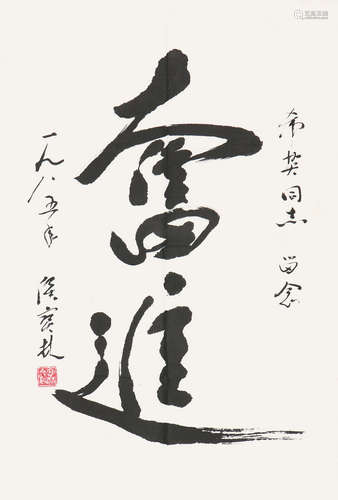 希英同志 留念
奮進
一九八五年
侯寶林